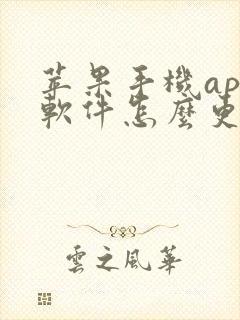 苹果手機ap
軟件怎麼更
雲之風華